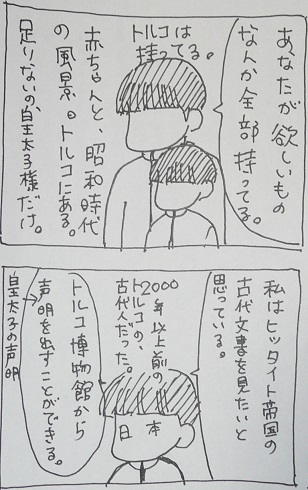 あなたが欲しいもの
なんか全部持ってる。
トルコは
持ってる。
赤ちゃんと、昭和時代
の風景。トルコにある。
足りないの、皇太子様だけ。
私はヒッタイト帝国の
古代文書を見たいと
思っている。
2000年以上前の
トルコの、
古代人だった。
日本
トルコ博物館から
声明を出すことができる。
皇太子の声明